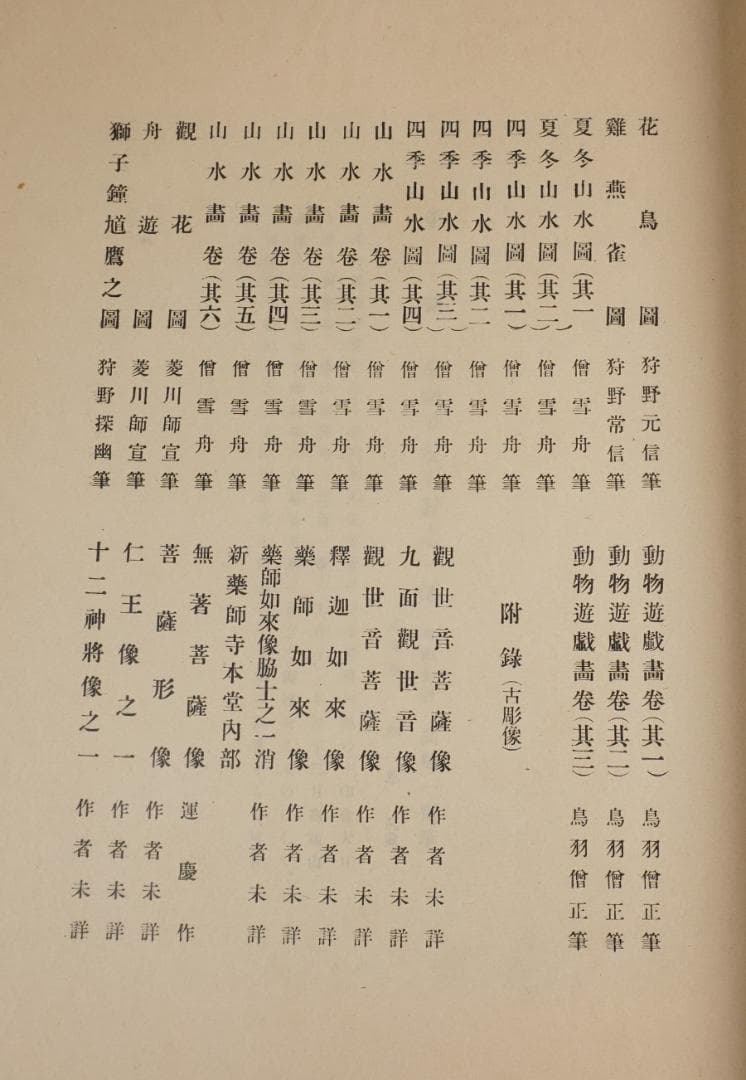 花鳥圖 狩野元信筆
雞燕雀圖 狩野常信筆
夏冬山水圖(其一) 僧雪舟筆
夏冬山水圖(其二) 僧雪舟筆
四季山水圖(其一) 僧雪舟筆
四季山水圖(其二) 僧雪舟筆
四季山水圖(其三) 僧雪舟筆
四季山水圖(其四) 僧雪舟筆
山水畵卷(其一) 僧雪舟筆
山水畵卷(其二) 僧雪舟筆
山水畵卷(其三) 僧雪舟筆
山水畵卷(其四) 僧雪舟筆
山水畵卷(其五) 僧雪舟筆
山水畵卷(其六) 僧雪舟筆
觀花圖 菱川師宣筆
舟遊圖 菱川師宣筆
獅子鐘馗鷹之圖 狩野探幽筆
動物遊戲畵卷(其一) 鳥羽僧正筆
動物遊戲畵卷(其二) 鳥羽僧正筆
動物遊戲畵卷(其三) 鳥羽僧正筆
附錄(古彫像)
觀世音菩薩像 作者未詳
九面觀世音像 作者未詳
觀世音菩薩像 作者未詳
釋迦如來像 作者未詳
藥師如來像 作者未詳
藥師如來像脇士之一消 作者未詳
新藥師寺本堂內部
無著菩薩像 運慶作
菩薩形像 作者未詳
仁王像之一 作者未詳
十二神將像之一 作者未詳